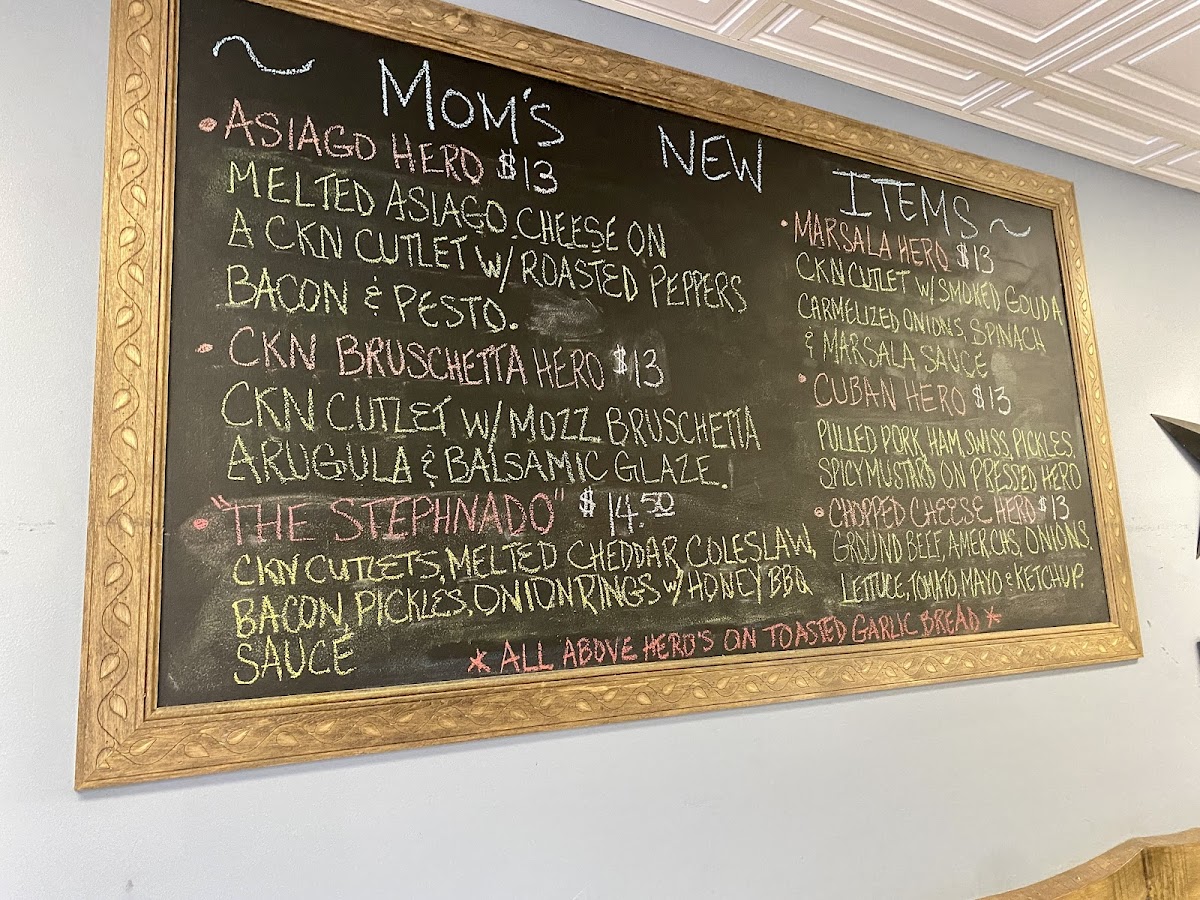 ~ MOM'S NEW ITEMS ~
• ASIAGO HERO $13
MELTED ASIAGO CHEESE ON
A CKN CUTLET W/ ROASTED PEPPERS
BACON & PESTO.
• CKN BRUSCHETTA HERO $13
CKN CUTLET W/ MOZZ BRUSCHETTA
ARUGULA & BALSAMIC GLAZE.
• "THE STEPHNADO" $14.50
CKN CUTLETS, MELTED CHEDDAR, COLESLAW,
BACON, PICKLES, ONION RINGS W/ HONEY BBQ
SAUCE
• MARSALA HERO $13
CKN CUTLET W/ SMOKED GOUDA
CARMELIZED ONIONS SPINACH
& MARSALA SAUCE
• CUBAN HERO $13
PULLED PORK, HAM, SWISS, PICKLES.
SPICY MUSTARD ON PRESSED HERO
• CHOPPED CHEESE HERO $13
GROUND BEEF, AMER CHS, ONIONS,
LETTUCE, TOMATO, MAYO & KETCHUP.
* ALL ABOVE HERO'S ON TOASTED GARLIC BREAD *